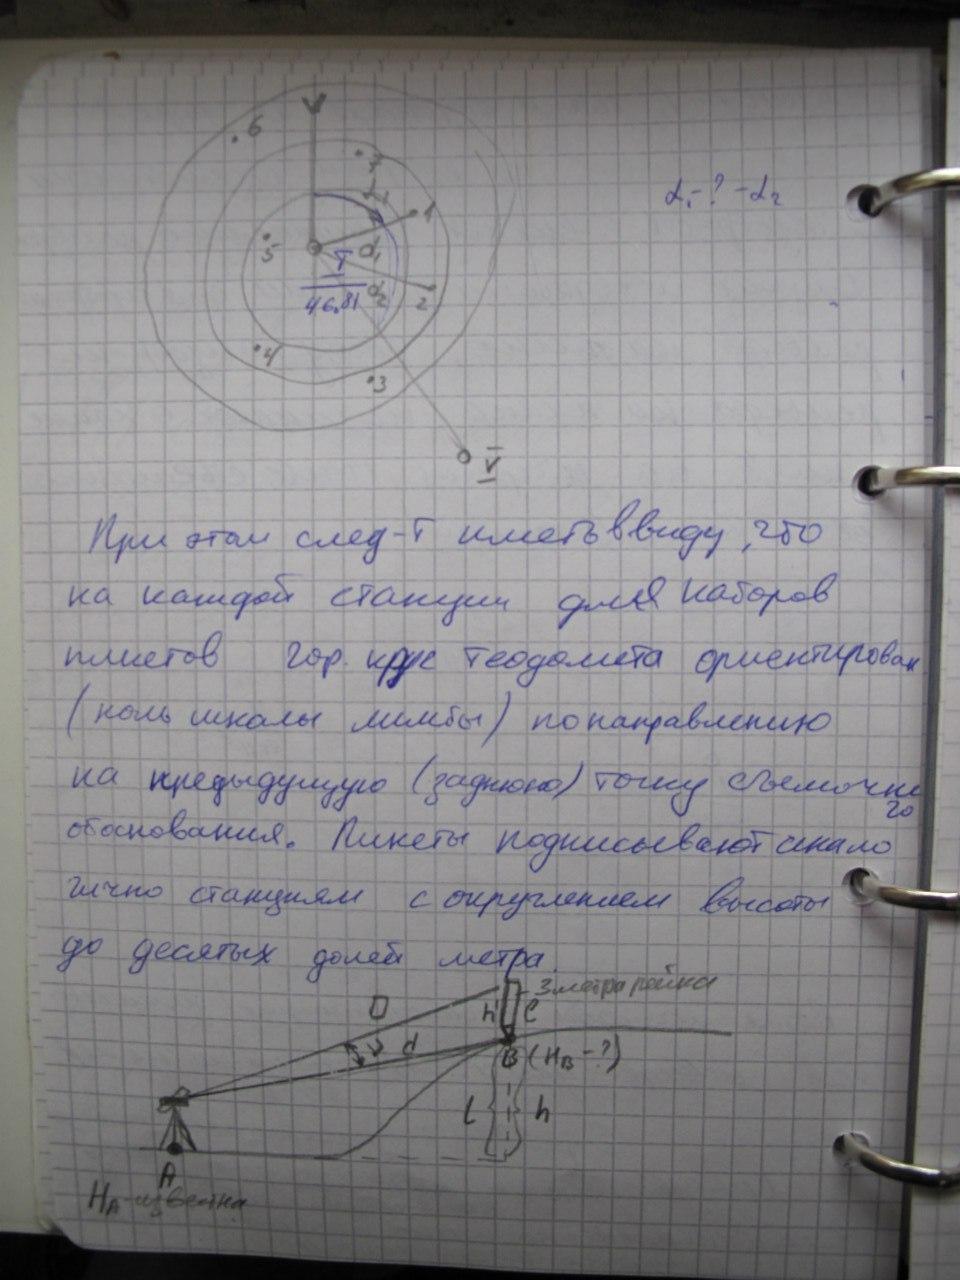 6
3
1
α₁-?-α₂
5
d₁
I
46.81
d₂
2
4
3
V
При этом след-т иметь ввиду, что
на каждой станции для наборов
пикетов гор. круг теодолита ориентирован
(ноль шкалы лимбы) по направлению
на предыдущую (заднюю) точку съемочно
го
обоснования. Пикеты подписывают анало
гично станциям с округлением высоты
до десятых долей метра
3 метра рейка
D
h
C
ν
d
B (HB-?)
l
h
A
HA-известна